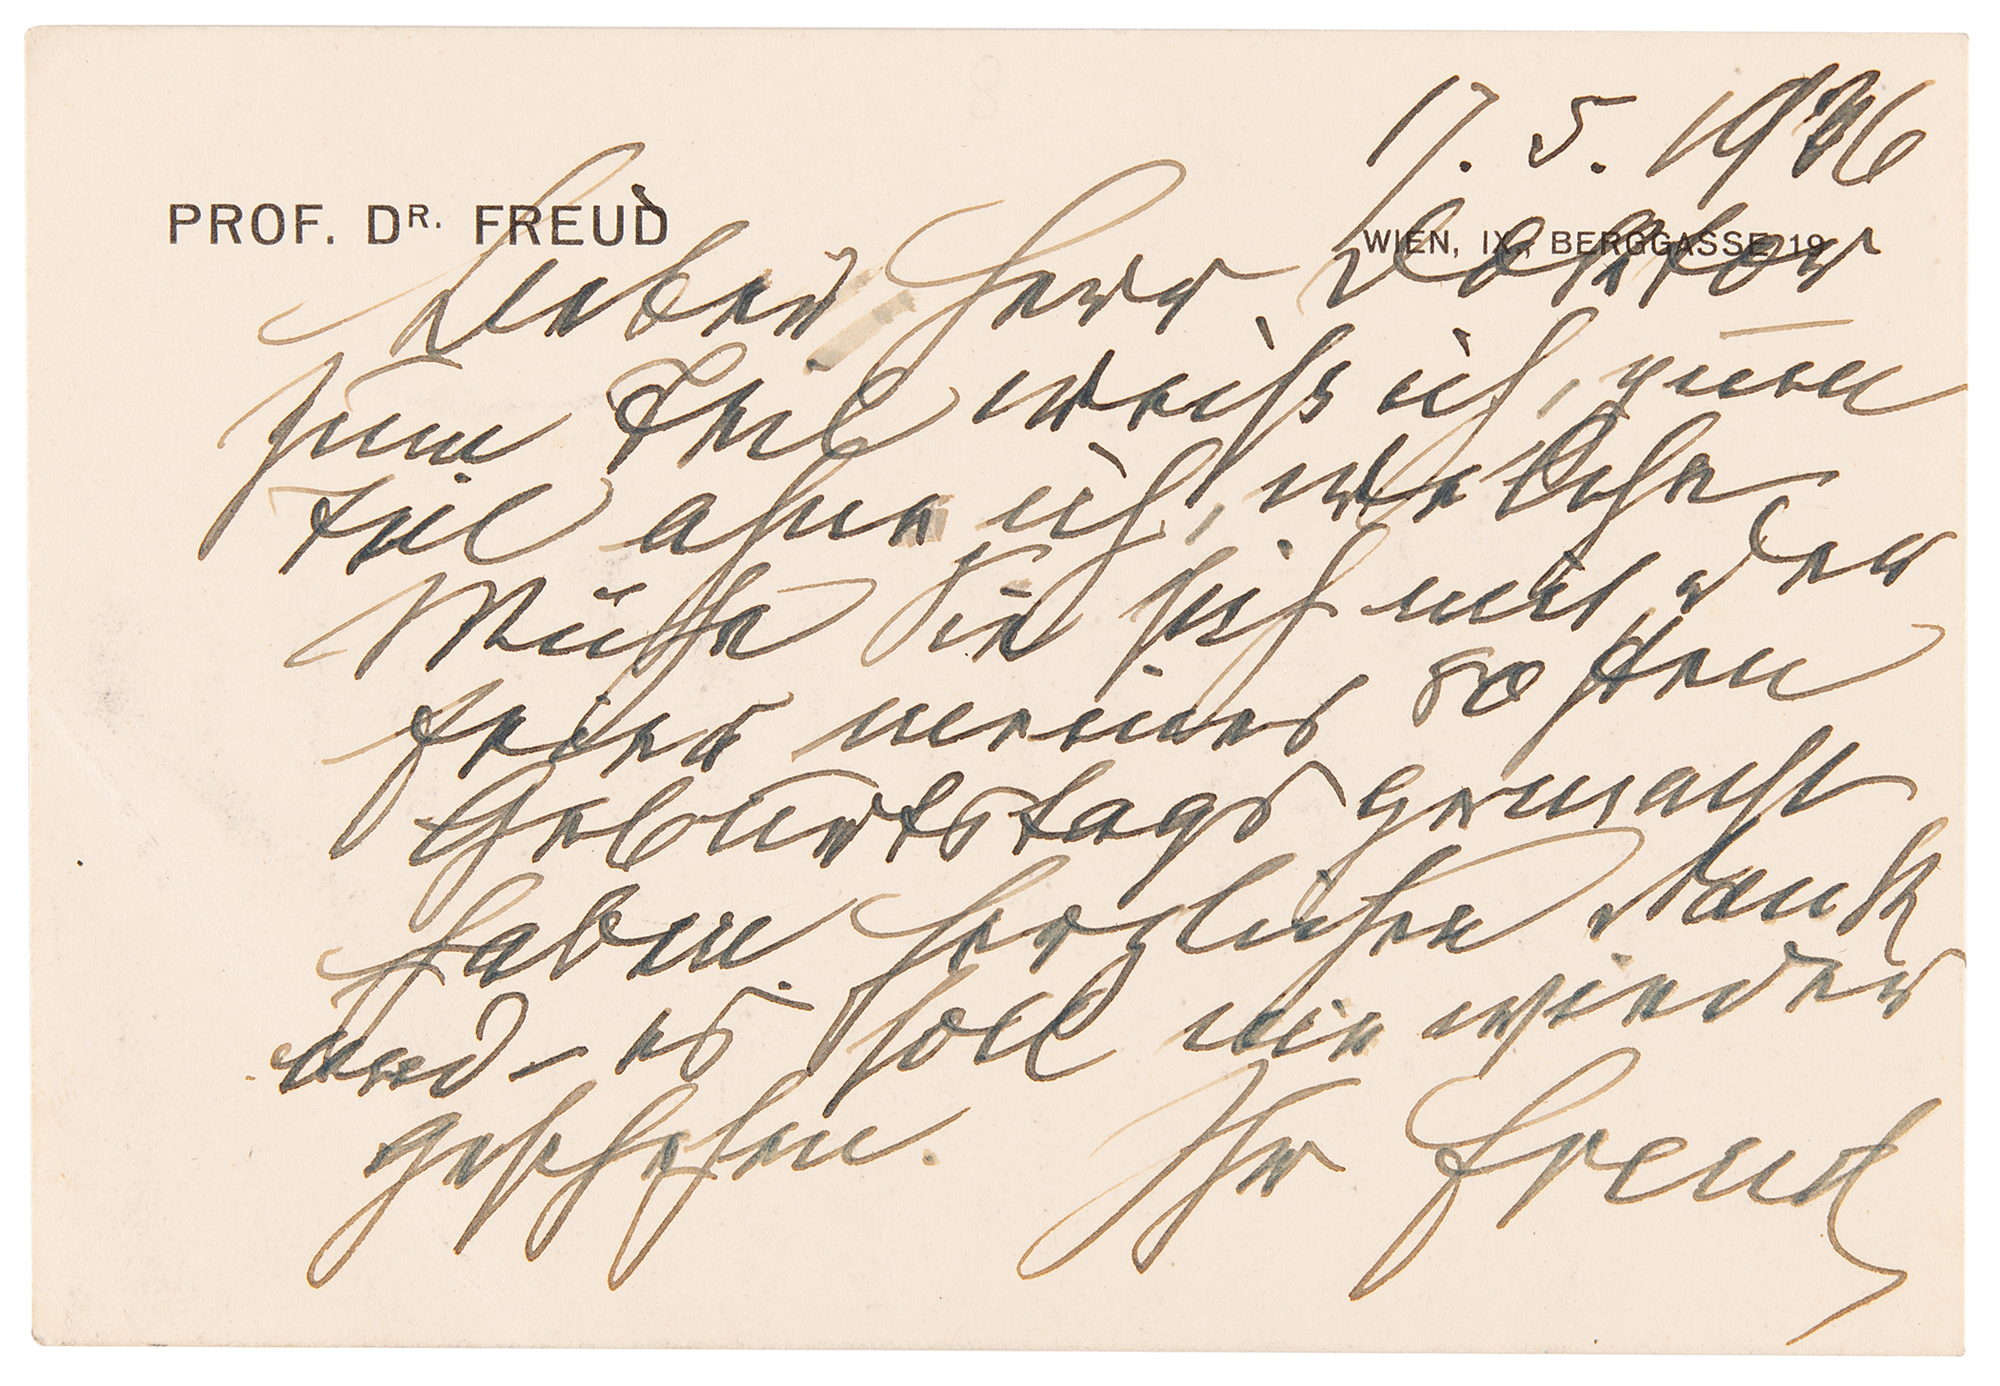 17. 5. 1936
PROF. DR. FREUD
WIEN, IX., BERGGASSE 19
Lieber Herr Doktor
Zum Teil weiß ich, zum
Teil ahne ich, welche
Mühe Sie sich mit der
Feier meines 80sten
Geburtstags gemacht
haben. Herzlichen Dank
und – es soll nie wieder
geschehen. Ihr Freud